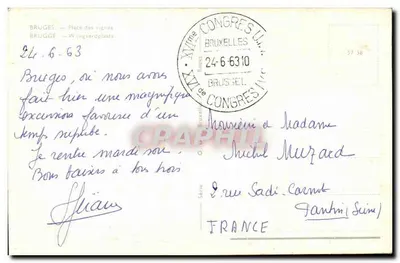 BRUGES - Place des cignes
24-6-63
Bruges, où nous avons
fait hier une magnifique
excursion favorisée d'un
temps superbe.
Je rentre mardi soir.
Bons baisers à tous trois
XVIme CONGRES
BRUXELLES
24-6-6310
BRUSSEL
XVIde CONGRES
Monsieur & Madame
Michel Muzard
2 rue Sadi-Carnot
Pantin (Seine)
FRANCE
CPAPHIL